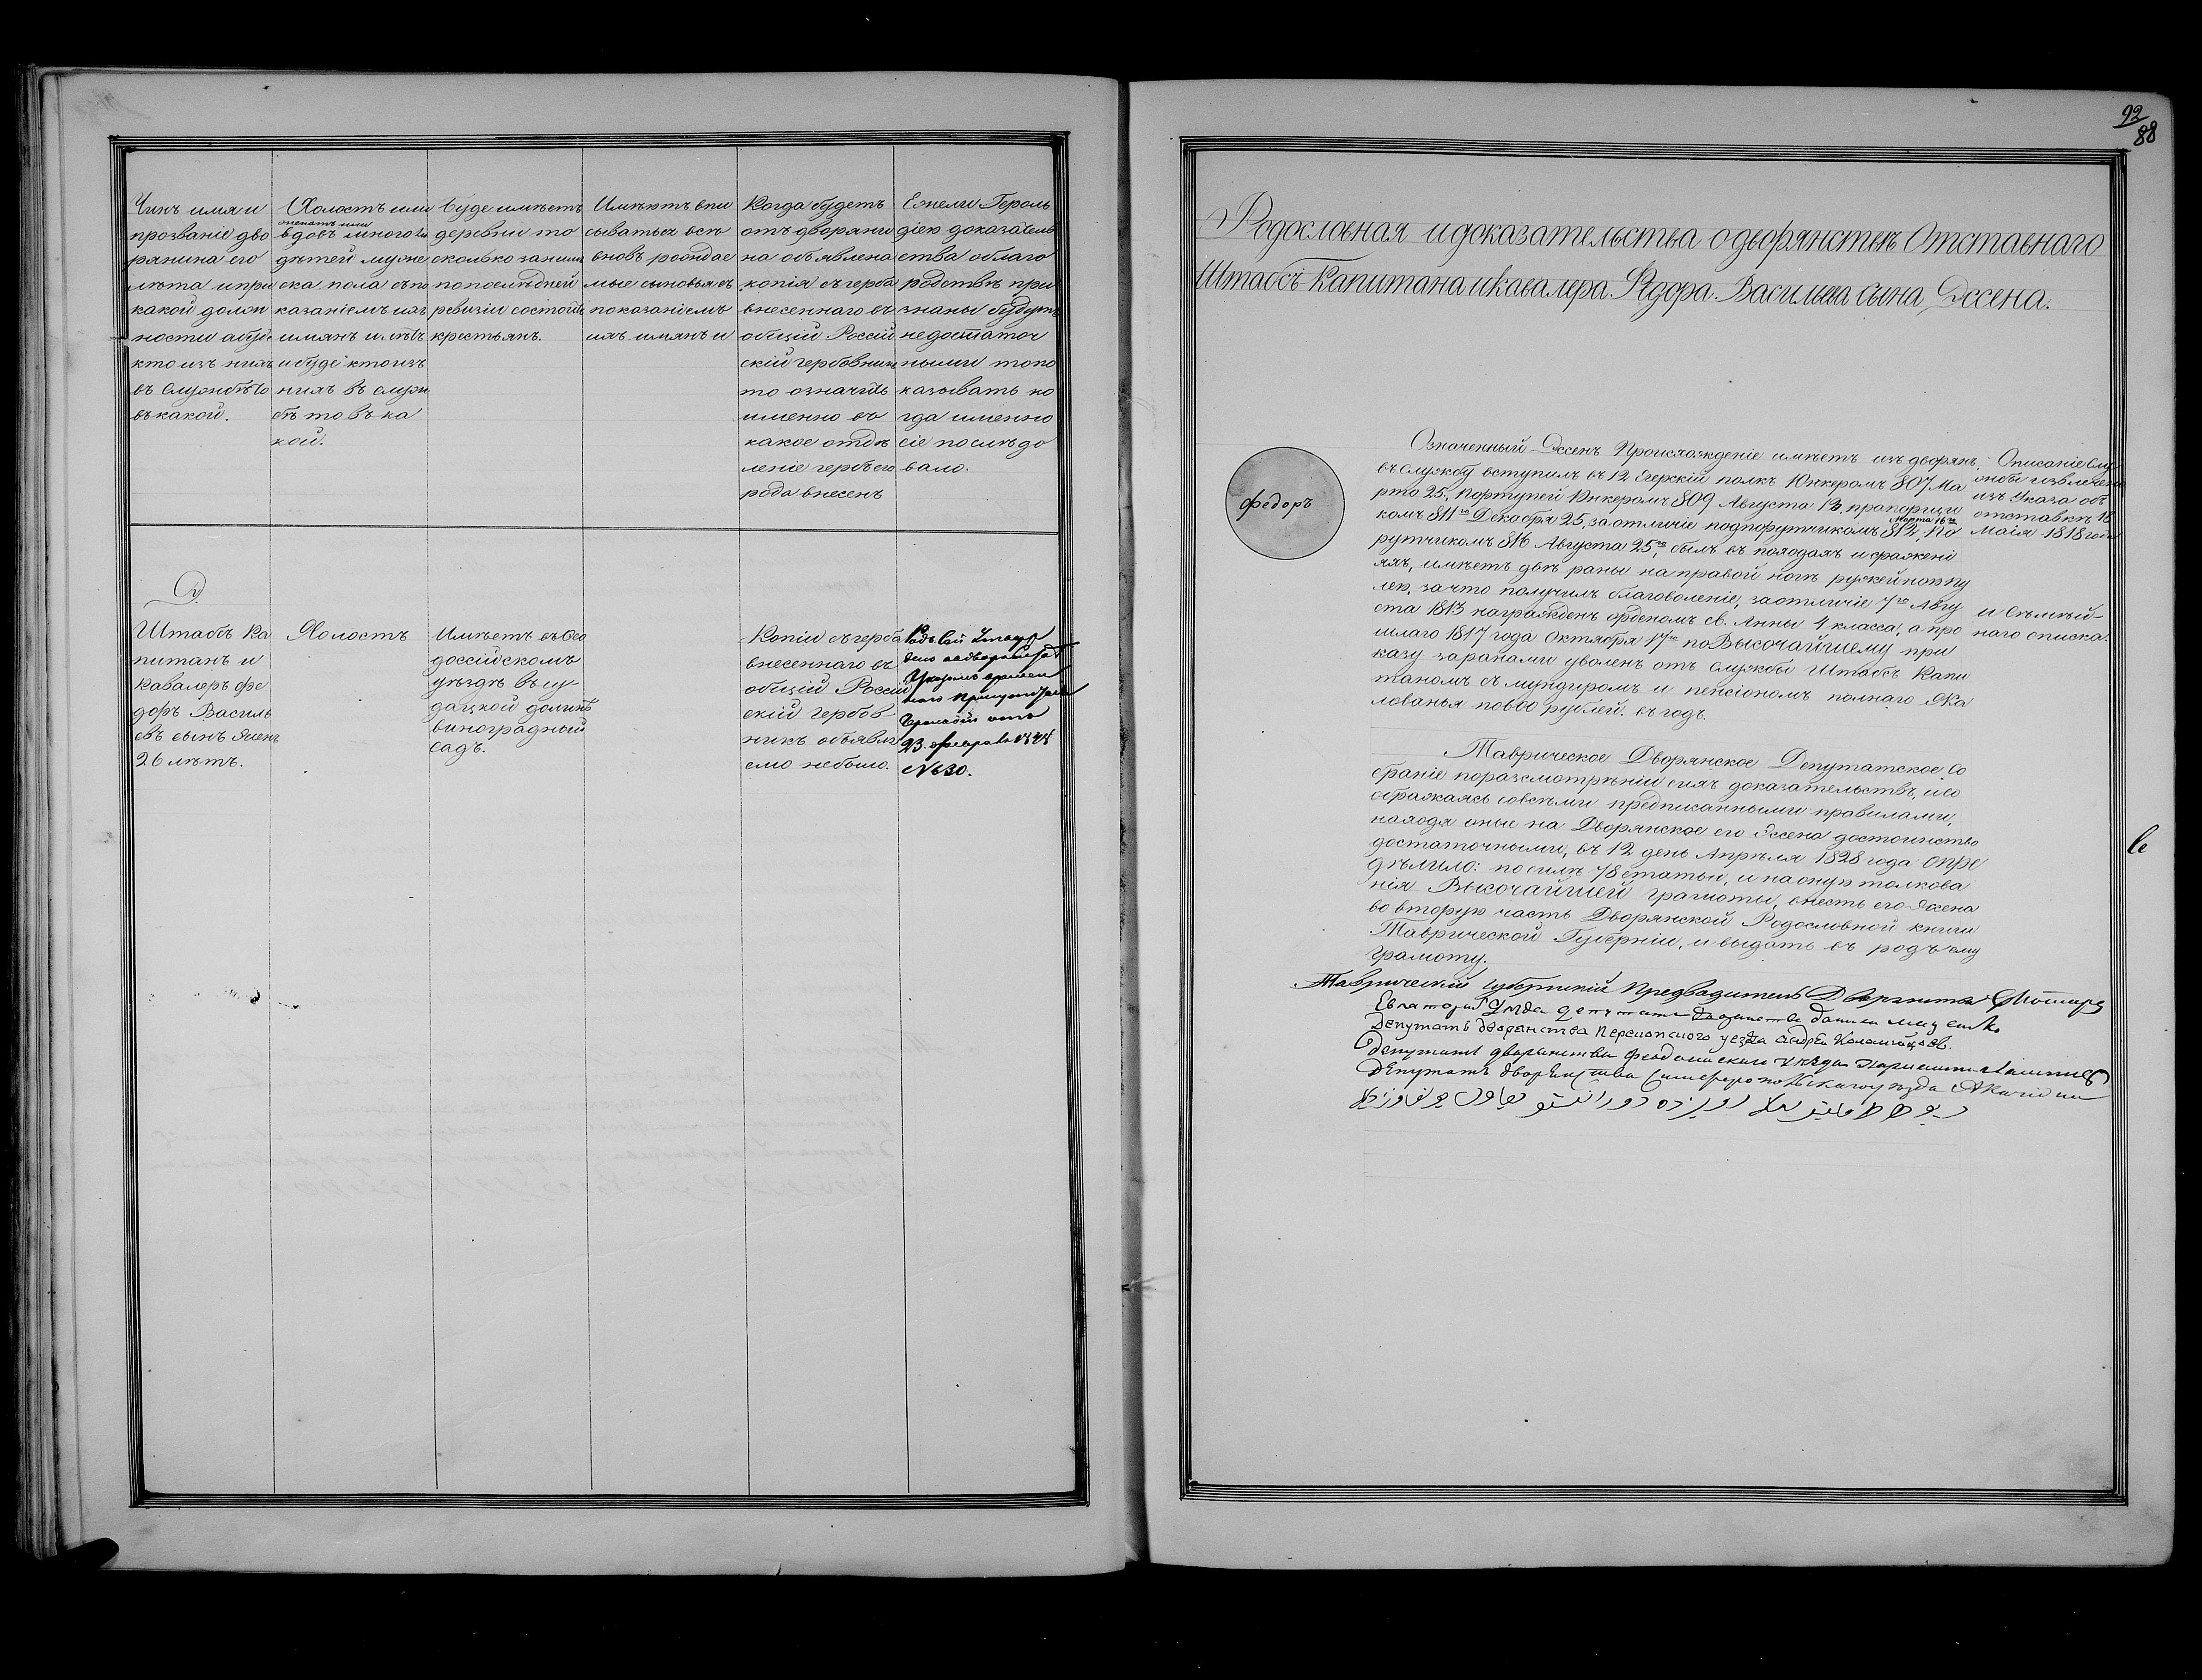 Чинъ имя и
прозваніе дво
рянина его
лѣта и при
какой долж
ности а буде
кто изъ нихъ
въ службѣ то
въ какой.
Холостъ или
женатъ или
вдовъ много ли
дѣтей муже
ска пола съ по
казаніемъ ихъ
имянъ и лѣтъ
и буде кто изъ
нихъ въ служ
бѣ то въ ка
кой.
буде имѣетъ
деревни то
сколько за ними
по послѣдней
ревизіи состоитъ
крестьянъ.
Имѣютъ впи
сыватьсѧ всѣ
вновь рождае
мые сыновья съ
показаніемъ
ихъ имянъ и
Когда будетъ
отъ дворяни
на объявлена
копія съ герба
внесеннаго въ
общій Россій
скій гербовник
то означить
именно въ
какое отдѣ
леніе гербъ его
рода внесенъ
Ежели Героль
діею доказатель
ства о благо
родствѣ при
знаны будутъ
недостаточ
ными то по
казывать ко
гда именно
сіе послѣдо
вало.
Штабсъ Ка
питанъ и
Кавалеръ Фе
доръ Василь
евъ сынъ Эсенъ
26 лѣтъ.
Холостъ
Имѣетъ въ Ѳео
доссійскомъ
уѣздѣ въ су-
дацкой долинѣ
виноградный
садъ.
Копіи съ герба
внесеннаго въ
общій Россій
скій Гербов
никъ объявл
емо небыло.
Родъ сей
Указомъ времен
наго Присутствія
Герольдіи отъ
23 февраля
№ 630.
92
88
Родословная и доказательства о дворянствѣ Отставнаго
Штабсъ Капитана и кавалера Ѳедора Васильева Сына Эссена.
Федоръ
Означенный Эссенъ Происхожденіе имѣетъ изъ дворянъ,
въ службу вступилъ въ 12 Егерскій полкъ Юнкеромъ 807 Ма
рта 25, Портупей Юнкеромъ 809 Августа 13, прапорщи
комъ 811го Декабря 25, за отличіе подпорутчикомъ 812 Марта 16го, По
рутчикомъ 816 Августа 25го, былъ въ походахъ и сраженi
яхъ, имѣетъ двѣ раны на правой ногѣ ружейною пу
лею, за что получилъ благоволеніе, за отличіе 7го Авгу
ста 1813 награжденъ орденомъ св. Анны 4 класса, а про
шлаго 1817 года Октября 17го по Высочайшему при
казу за ранами уволенъ отъ службы Штабсъ Капи
таномъ съ мундиромъ и пенсіономъ полнаго Жа
лованья по 600 рублей въ годъ.
Описаніе слу
жбы извлечено
изъ Указа объ
отставкѣ 18
Маія 1818 года
наго списка.
Таврическое Дворянское Депутатское Со
браніе по разсмотрѣніи сихъ доказательствъ, и со
ображаясь со всѣми предписанными правилами,
находя оные на Дворянское его Эссена достоинство
достаточными, въ 12 день Апрѣля 1828 года опре
дѣлило: по силѣ 78 статьи, и на оную толкова
нія Высочайшей Грамоты, внесть его Эссена
во вторую часть Дворянской Родословной книги
Таврической Губерніи, и выдать въ родъ ему
грамоту.
Таврическій Губернскій Предводитель Дворянства
Депутатъ дворянства Перекопского уезда Андрей
Депутатъ дворянства Феодосискаго Уѣзда
Депутатъ дворянства Симферопольскаго уѣзда